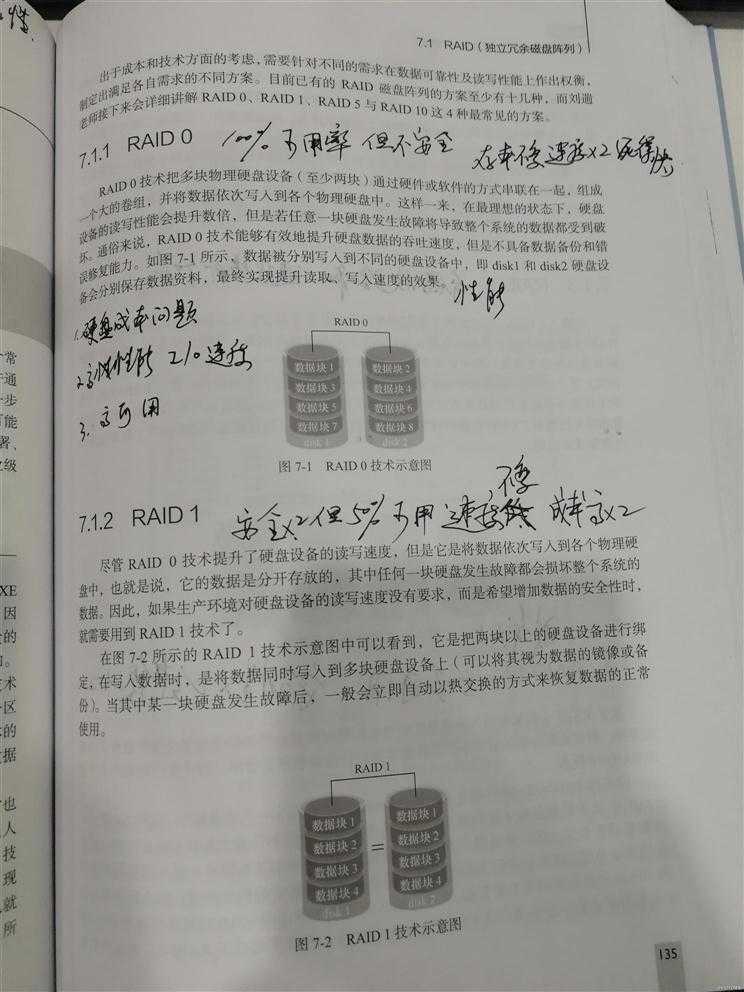 7.1 RAID（独立冗余磁盘阵列）
出于成本和技术方面的考虑，需要针对不同的需求在数据可靠性及读写性能上作出权衡，
制定出满足各自需求的不同方案。目前已有的 RAID 磁盘阵列的方案至少有十几种，而刘遄
老师接下来会详细讲解 RAID 0、RAID 1、RAID 5 与 RAID 10 这 4 种最常见的方案。
7.1.1 RAID 0 100% 可用率 但不安全
速度x2
RAID 0 技术把多块物理硬盘设备（至少两块）通过硬件或软件的方式串联在一起，组成
一个大的卷组，并将数据依次写入到各个物理硬盘中。这样一来，在最理想的状态下，硬盘
设备的读写性能会提升数倍，但是若任意一块硬盘发生故障将导致整个系统的数据都受到破
坏。通俗来说，RAID 0 技术能够有效地提升硬盘数据的吞吐速度，但是不具备数据备份和错
误修复能力。如图 7-1 所示，数据被分别写入到不同的硬盘设备中，即 disk1 和 disk2 硬盘设
备会分别保存数据资料，最终实现提升读取、写入速度的效果。
性能
1.硬盘成本问题
2.高 性能 速度
3.高可用
RAID 0
数据块 1 数据块 2
数据块 3 数据块 4
数据块 5 数据块 6
数据块 7 数据块 8
disk 1 disk 2
图 7-1 RAID 0 技术示意图
7.1.2 RAID 1 安全x2 但50%可用 速度 成本高x2
尽管 RAID 0 技术提升了硬盘设备的读写速度，但是它是将数据依次写入到各个物理硬
盘中，也就是说，它的数据是分开存放的，其中任何一块硬盘发生故障都会损坏整个系统的
数据。因此，如果生产环境对硬盘设备的读写速度没有要求，而是希望增加数据的安全性时，
就需要用到 RAID 1 技术了。
在图 7-2 所示的 RAID 1 技术示意图中可以看到，它是把两块以上的硬盘设备进行绑
定，在写入数据时，是将数据同时写入到多块硬盘设备上（可以将其视为数据的镜像或备
份）。当其中某一块硬盘发生故障后，一般会立即自动以热交换的方式来恢复数据的正常
使用。
RAID 1
数据块 1 数据块 1
数据块 2 数据块 2
=
数据块 3 数据块 3
数据块 4 数据块 4
disk 1 disk 2
图 7-2 RAID 1 技术示意图
135
常
通
步
能
署、
级
XE
因
的
术
区
的
据
也
人
技
现
就
所